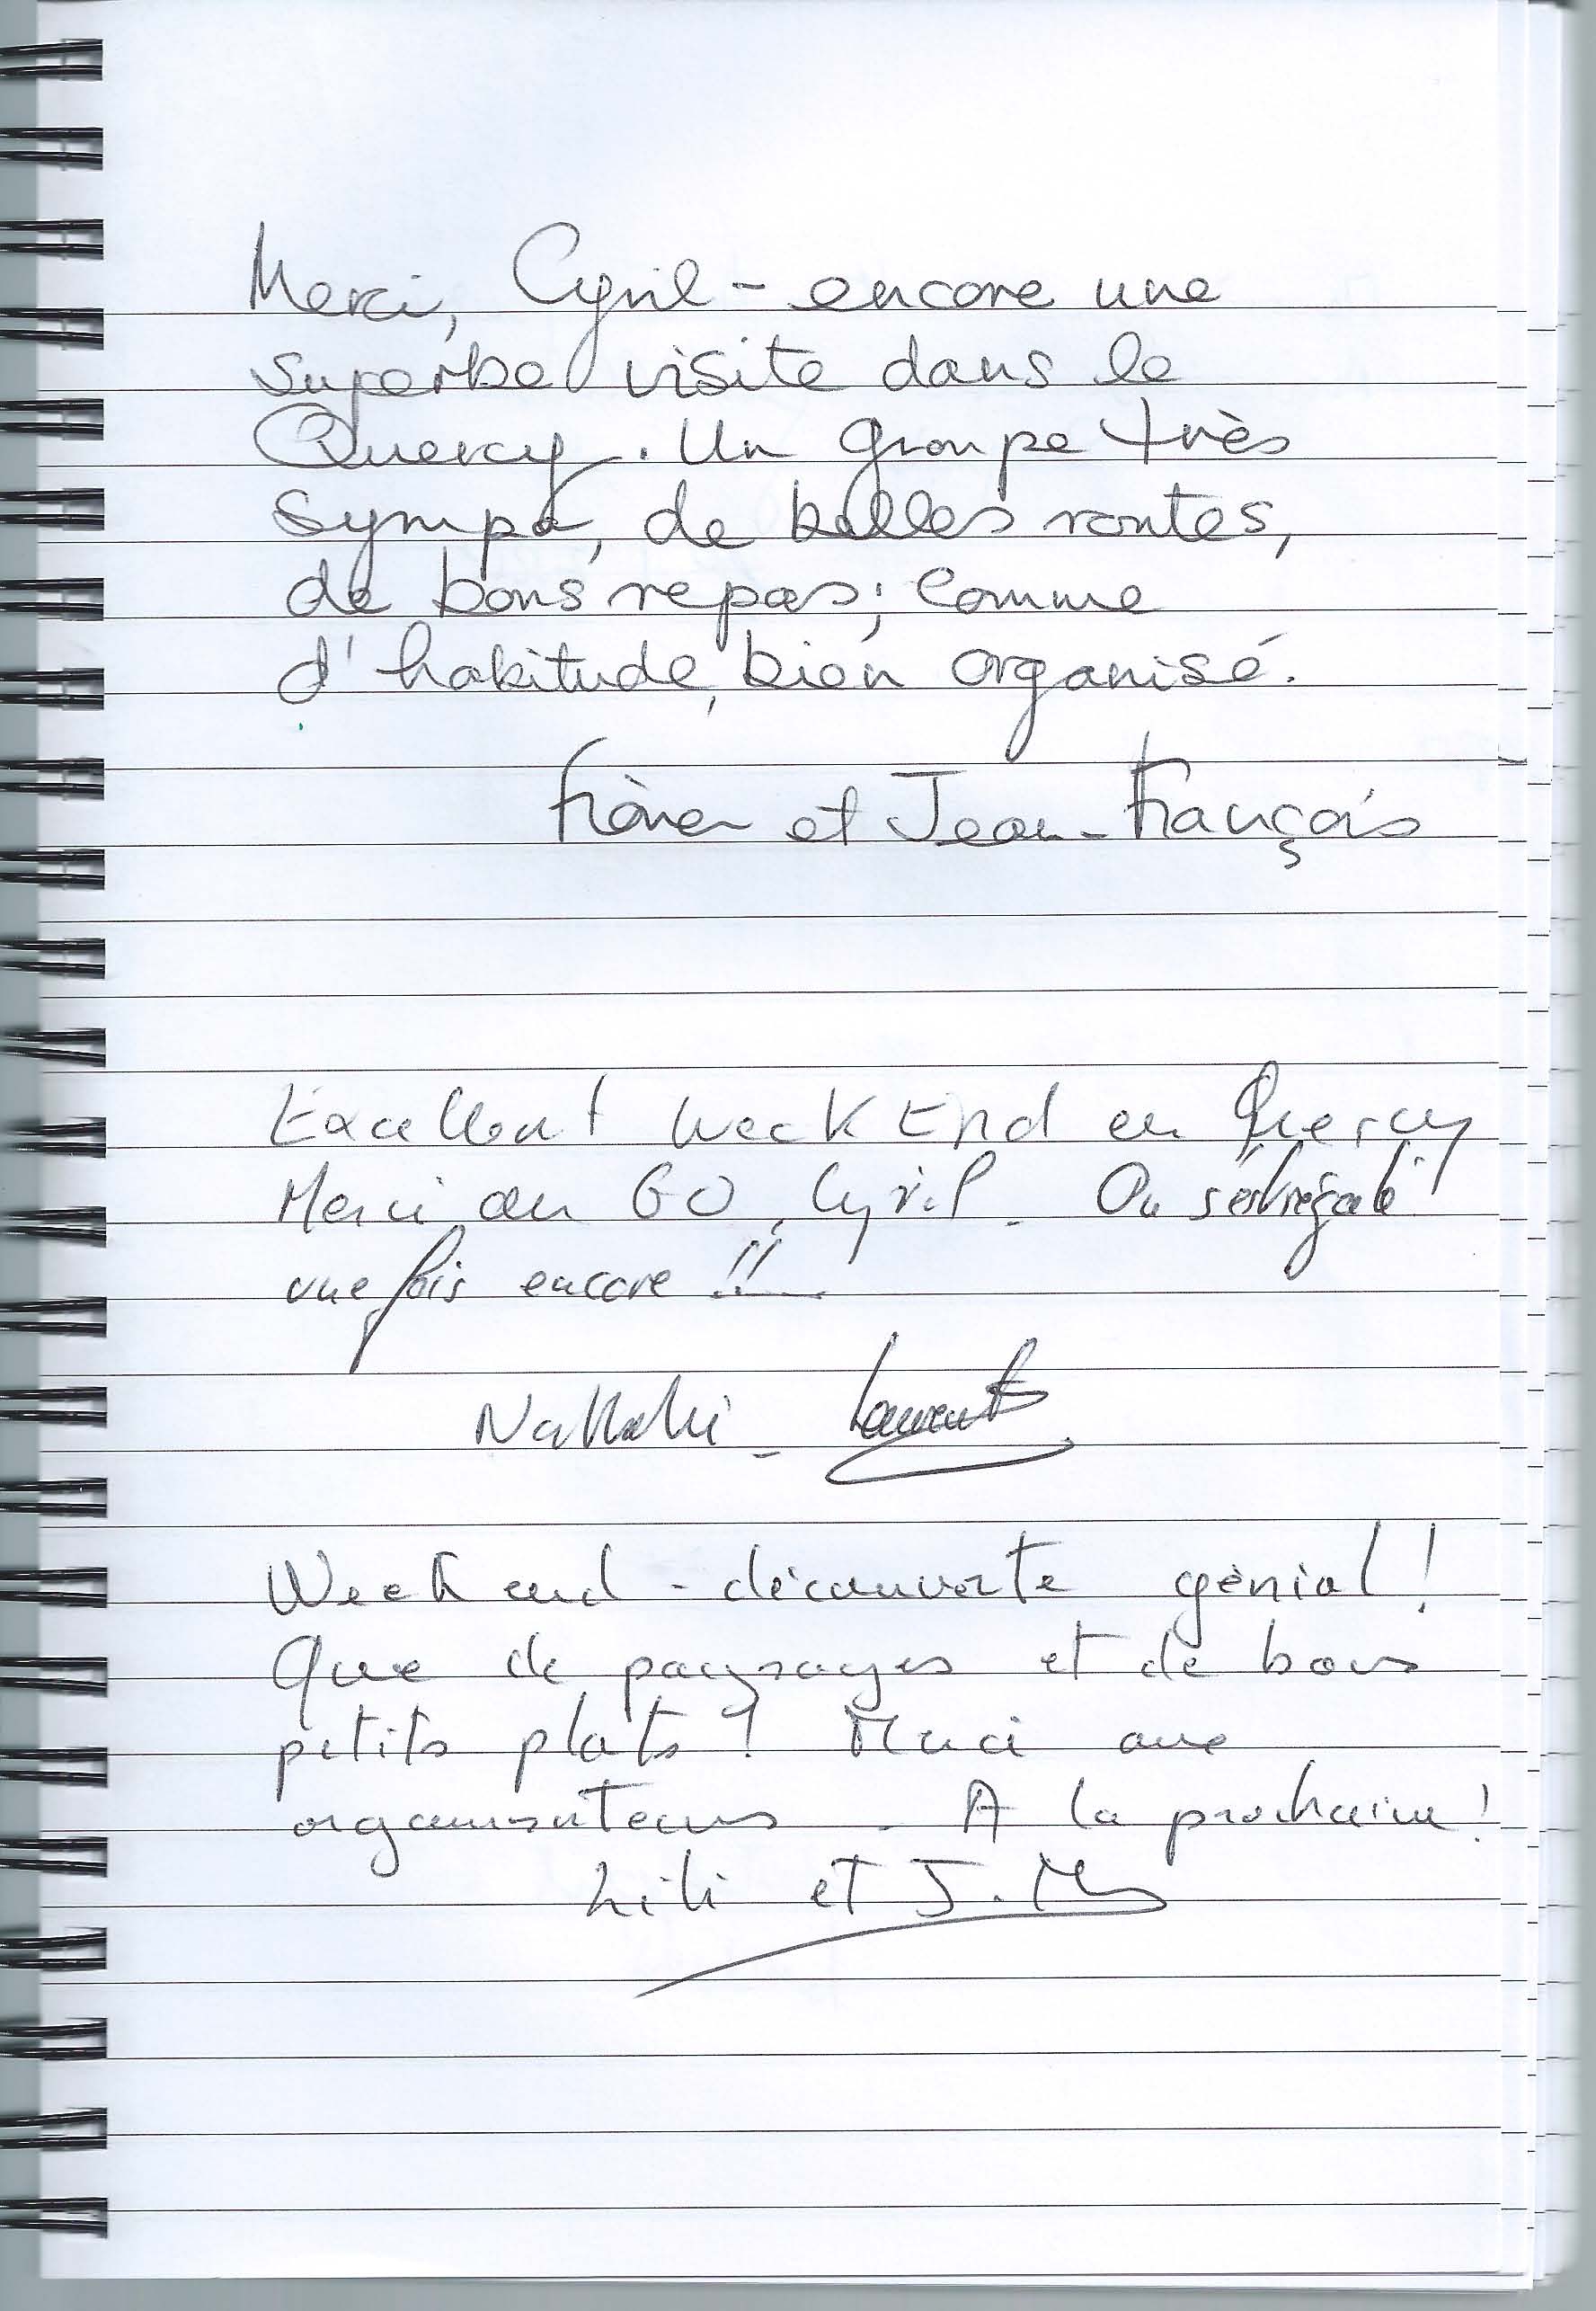 Merci, Cyril - encore une
superbe visite dans le
Quercy. Un groupe très
sympa, de belles routes,
de bons repas; comme
d'habitude, bien organisé.
et Jean-François
Excellent Week End en Quercy
Merci au GO, Cyril. On s'est régalé
une fois encore !!
Nathalie - Laurent
Week end - découverte génial !
Que de paysages et de bons
petits plats ! Merci aux
organisateurs. A la prochaine !
Lili et J.M